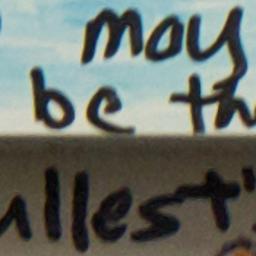 may
be th
ullest"